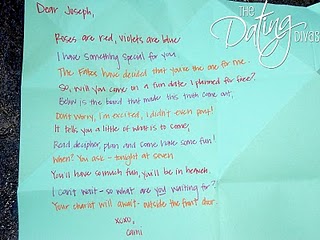 Dear Joseph,
the Dating Divas
Roses are red, violets are blue
I have something special for you.
The Fates have decided that you're the one for me.
So, will you come on a fun date I planned for free?
Below is the board that made this truth come out,
Don't worry, I'm excited, I didn't even pout!
It tells you a little of what is to come,
Read, decipher, plan and come have some fun!
When? You ask - tonight at seven
You'll have so much fun, you'll be in heaven.
I can't wait - so what are you waiting for?
Your chariot will await - outside the front door.
xoxo,
Cami